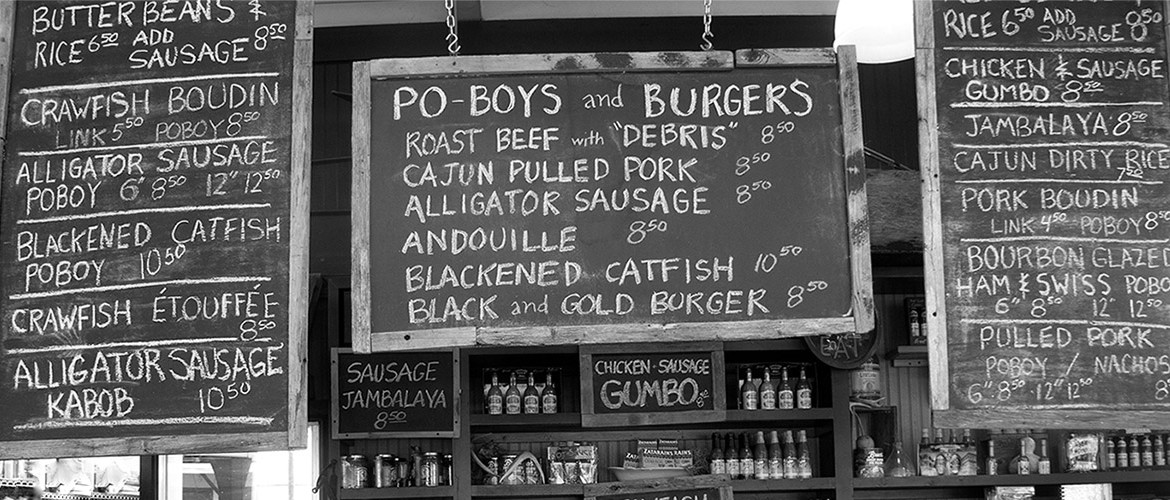 BUTTER BEANS &
RICE 6.50 ADD SAUSAGE 8.50
CRAWFISH BOUDIN
LINK 5.50 POBOY 8.50
ALLIGATOR SAUSAGE
POBOY 6" 8.50 12" 12.50
BLACKENED CATFISH
POBOY 10.50
CRAWFISH ÉTOUFFÉE
8.50
ALLIGATOR SAUSAGE
KABOB 10.50
PO-BOYS and BURGERS
ROAST BEEF with "DEBRIS" 8.50
CAJUN PULLED PORK 8.50
ALLIGATOR SAUSAGE 8.50
ANDOUILLE 8.50
BLACKENED CATFISH 10.50
BLACK and GOLD BURGER 8.50
SAUSAGE
JAMBALAYA
8.50
CHICKEN - SAUSAGE
GUMBO
EAT
ZATARAIN'S
RICE 6.50 ADD SAUSAGE 8.50
CHICKEN & SAUSAGE
GUMBO 8.50
JAMBALAYA 8.50
CAJUN DIRTY RICE
7.50
PORK BOUDIN
LINK 4.50 POBOY 8.50
BOURBON GLAZED
HAM & SWISS POBO
6" 8.50 12" 12.50
PULLED PORK
POBOY / NACHOS
6" 8.50 12" 12.50 8